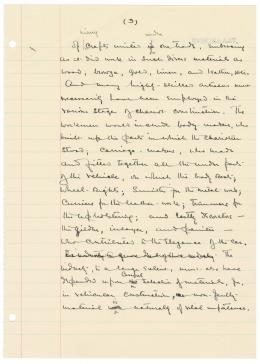 (3)
many under
of Crafts united in one trade, embracing
as it did work in such divers materials as
wood, bronze, gold, linen, and leather, etc.
And many highly-skilled artisans must
necessarily have been employed in the
various stages of chariot construction. The
workmen would include body-makers, who
built up the part in which the Charioteer
stood; Carriage-makers, who made
and fitted together all the under part
of the vehicle, on which the body rest;
Wheel-Rights; Smiths for the metal work;
Curriers for the leather-work; Trimmers for
the upholstering; and lastly Decorators -
the gilders, inlayers, and painters -
who contributed to the elegance of the car.
The
industry, to a large extent, must also have
depended upon careful selection of materials, for,
in vehicular construction, non-faulty
material is naturally of vital importance,